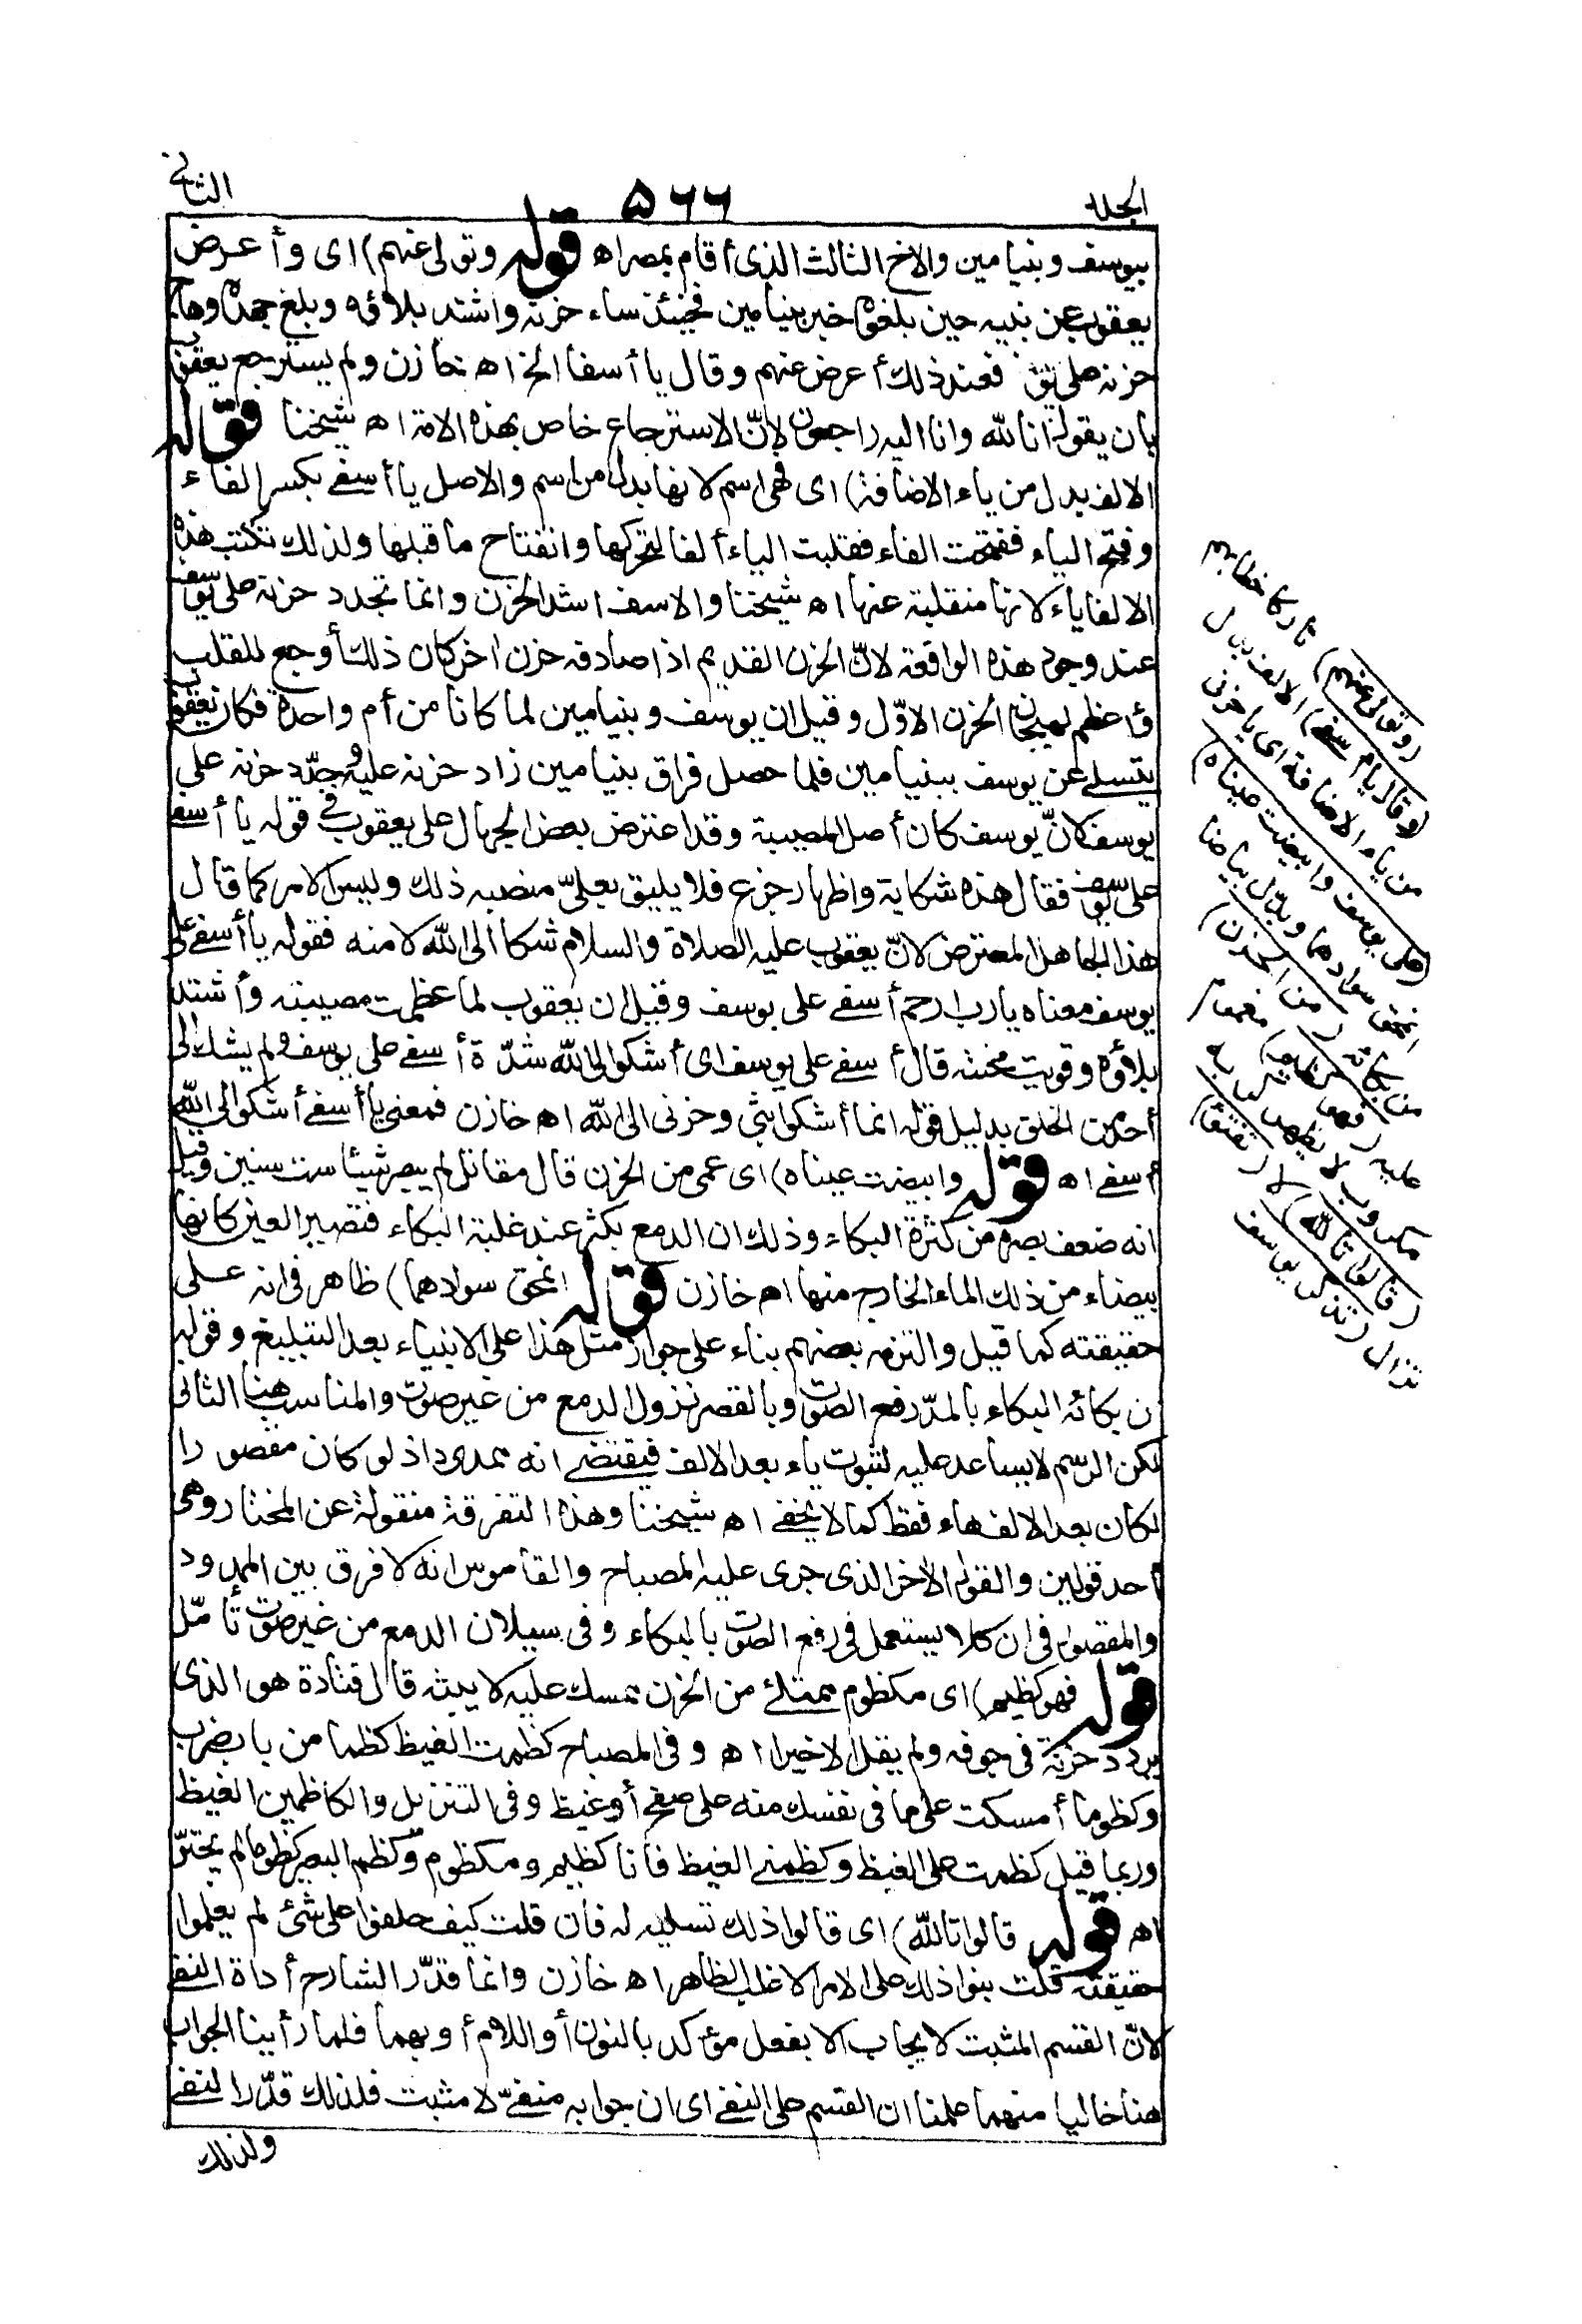 الجلد
٥٦٦
الثانى
بيوسف وبنيامين والاخ الثالث الذى أقام بمصر اه قوله وتولى عنهم) اى وأعرض
يعقوب عن بنيه حين بلغوه خبر بنيامين فحينئذ ساء حزنه واشتد بلاؤه وبلغ جهده وهاج
حزنه على يوسف فعند ذلك أعرض عنهم وقال يا أسفا الخ اه خازن ولم يسترجع يعقوب
بان يقول انا لله وانا اليه راجعون لانّ الاسترجاع خاص بهذه الامة اه شيخنا قوله
الالف بدل من ياء الاضافة) اى فهى اسم لانها بدل من اسم والاصل يا أسفى بكسر الفاء
وفتح الياء ففتحت الفاء فقلبت الياء ألفا لتحركها وانفتاح ما قبلها ولذلك تكتب هذه
الالف ياء لانها منقلبة عنها اه شيخنا والاسف اشد الحزن وانما تجدد حزنه على يوسف
عند وجود هذه الواقعة لانّ الحزن القديم اذا صادفه حزن اخر كان ذلك أوجع للقلب
وأعظم لهيجان الحزن الاوّل وقيل ان يوسف وبنيامين لما كانا من أم واحدة فكان يعقوب
يتسلى عن يوسف ببنيامين فلما حصل فراق بنيامين زاد حزنه عليه وجدّد حزنه على
يوسف لانّ يوسف كان أصل المصيبة وقد اعترض بعض الجهال على يعقوب فى قوله يا أسفى
على يوسف فقال هذه شكاية واظهار جزع فلا يليق بعلىّ منصبه ذلك وليس الامر كما قال
هذا الجاهل المعترض لانّ يعقوب عليه الصلاة والسلام شكا الى الله لا منه فقوله يا أسفى على
يوسف معناه يا رب ارحم أسفى على يوسف وقيل ان يعقوب لما عظمت مصيبته وأشتد
بلاؤه وقويت محنته قال أسفى على يوسف اى أشكو الى الله شدّة أسفى على يوسف ولم يشك الى
أحد من الخلق بدليل قوله انما أشكو بثى وحزنى الى الله اه خازن فمعنى يا أسفى أشكو الى الله
أسفى اه قوله وابيضت عيناه) اى عمى من الحزن قال مقاتل لم يبصر شيئا ست سنين وقيل
انه ضعف بصره من كثرة البكاء وذلك ان الدمع يكثر عند غلبة البكاء فتصير العين كانها
بيضاء من ذلك الماء الخارج منها اه خازن قوله انمحق سوادهما) ظاهر فى انه على
حقيقته كما قيل والتزمه بعضهم بناء على جواز مثل هذا على الانبياء بعد التبليغ وقوله
من بكائه البكاء بالمدّ رفع الصوت وبالقصر نزول الدمع من غير صوت والمناسب هنا الثانى
لكن الرسم لا يساعد عليه لثبوت ياء بعد الالف فيقتضى انه ممدود اذ لو كان مقصورا
لكان بعد الالف هاء فقط كما لا يخفى اه شيخنا وهذه التفرقة منقولة عن المختار وهى
أحد قولين والقول الاخر الذى جرى عليه المصباح والقاموس انه لا فرق بين الممدود
والمقصور فى ان كلا يستعمل فى رفع الصوت بالبكاء وفى سيلان الدمع من غير صوت تأمّل
قوله فهو كظيم) اى مكظوم ممتلئ من الحزن ممسك عليه لا يبثه قال قتادة هو الذى
يردد حزنه فى جوفه ولم يقل الا خيرا اه وفى المصباح كظمت الغيظ كظما من باب ضرب
وكظوما أمسكت على ما فى نفسك منه على صفح أو غيظ وفى التنزيل والكاظمين الغيظ
وربما قيل كظمت على الغيظ وكظمنى الغيظ فأنا كظيم ومكظوم وكظم البعير كظوما لم يجترّ
اه قوله قالوا تالله) اى قالوا ذلك تسلية له فان قلت كيف حلفوا على شئ لم يعلموا
حقيقته قلت بنوا ذلك على الامر الاغلب الظاهر اه خازن وانما قدّر الشارح أداة النفى
لانّ القسم المثبت لا يجاب الا بفعل مؤكد بالنون أو اللام أو بهما فلما رأينا الجواب
هنا خاليا منهما علمنا ان القسم على النفى اى ان جوابه منفىّ لا مثبت فلذلك قدّر النفى
ولذلك
(وتولى عنهم) تاركا خطابهم
(وقال يا أسفى) الالف بدل
من ياء الاضافة اى يا حزنى
(على يوسف وابيضت عيناه)
انمحق سوادهما وبدّل بياضا
من بكائه (من الحزن)
عليه (فهو كظيم) مغموم
مكروب لا يظهر كربه
(قالوا تالله) لا (تفتؤا)
تزال (تذكر يوسف